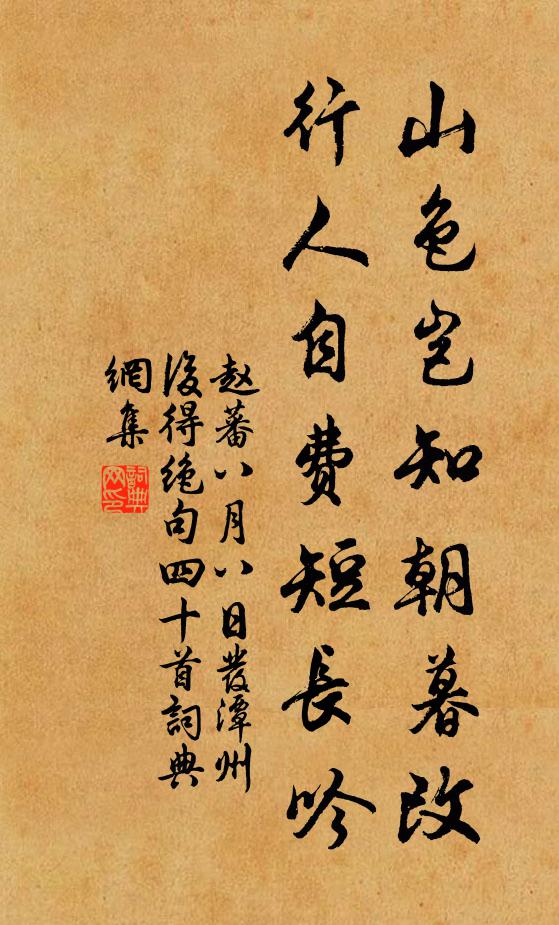 山色岂知朝暮改
行人自费短長吟
赵蕃八月八日發潭州
後得绝句四十首詞典
網集
詞典
网印